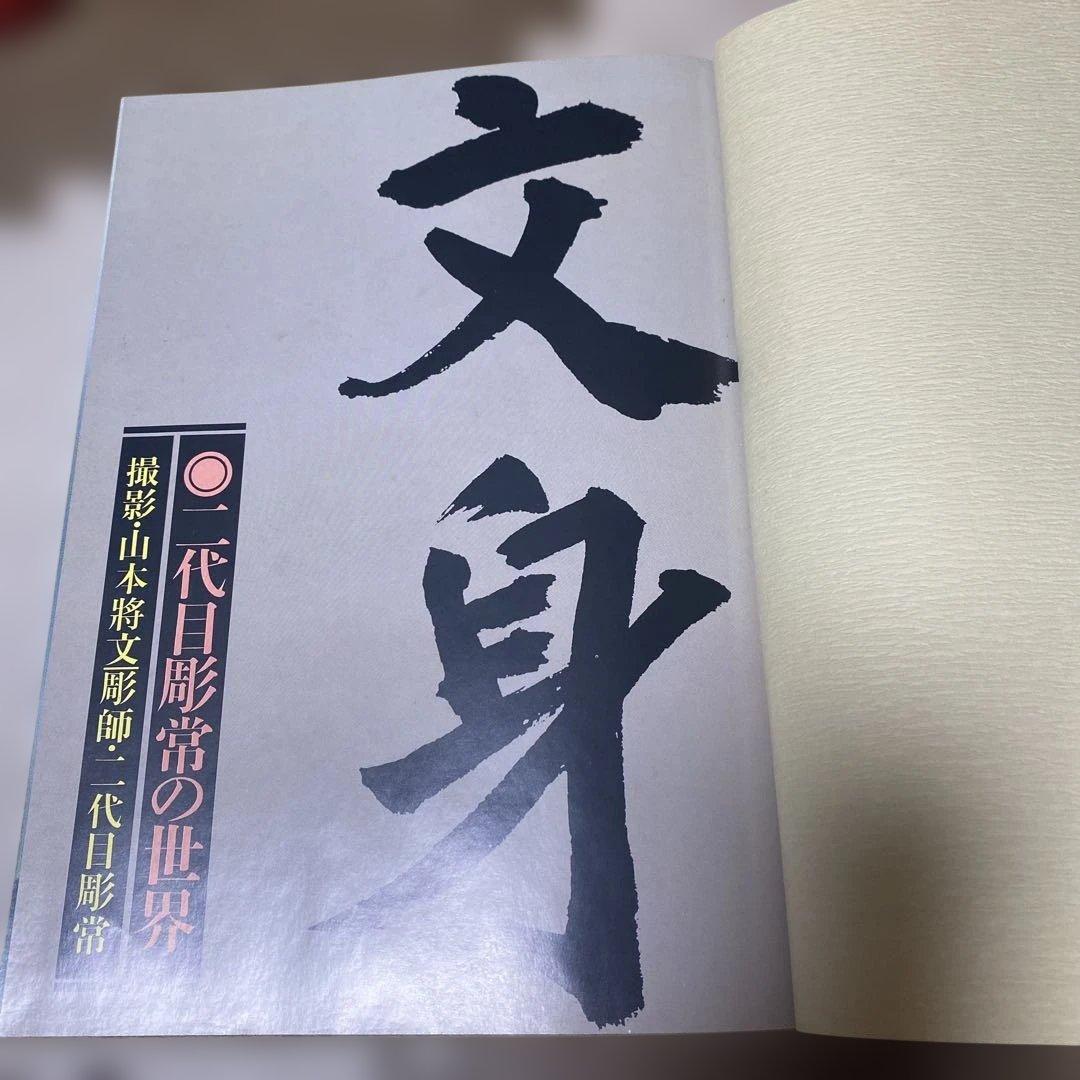 文身
◎二代目彫常の世界
撮影・山本將文彫師・二代目彫常